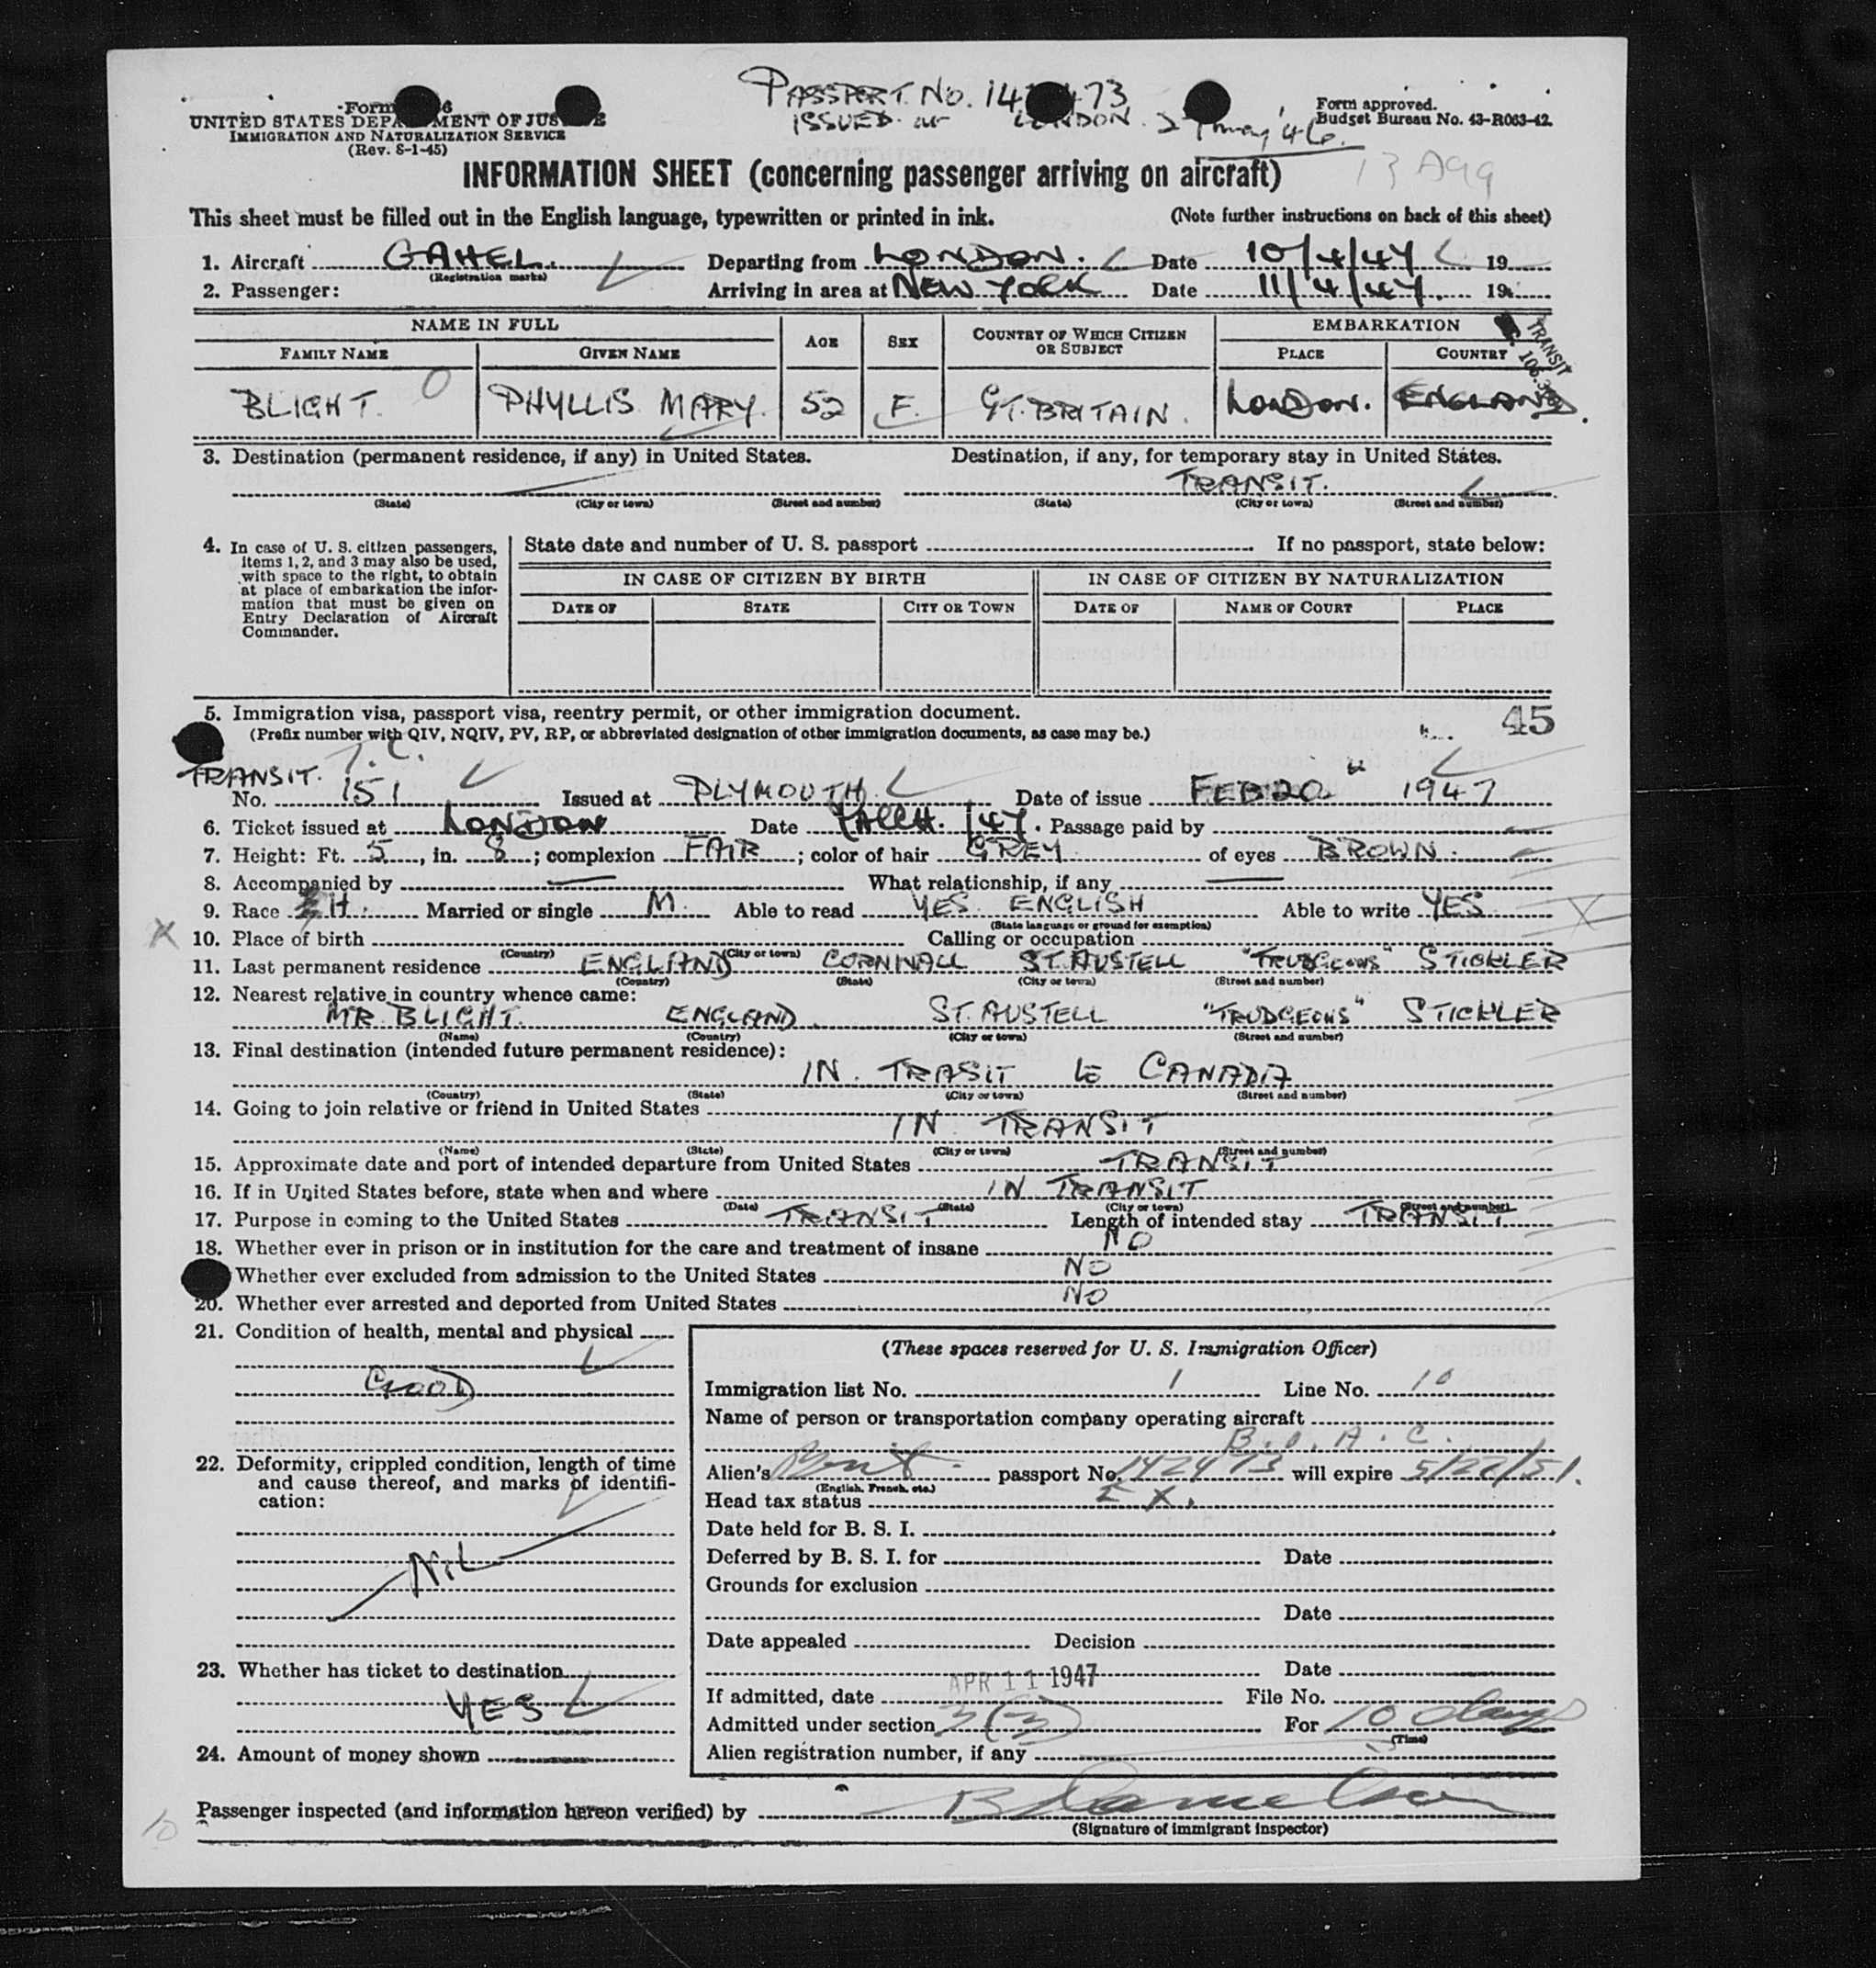 PASSPORT. No. 14 473
Form 6
UNITED STATES DEPARTMENT OF JUSTICE
IMMIGRATION AND NATURALIZATION SERVICE
(Rev. 8-1-45)
ISSUED at LONDON. may '46.
Form approved.
Budget Bureau No. 43-R063-42.
INFORMATION SHEET (concerning passenger arriving on aircraft)
13 A99
This sheet must be filled out in the English language, typewritten or printed in ink. (Note further instructions on back of this sheet)
1. Aircraft GAHEL. Departing from LONDON. Date 10/4/47 19
(Registration marks)
2. Passenger: Arriving in area at NEW YORK Date 11/4/47. 19
NAME IN FULL AGE SEX COUNTRY OF WHICH CITIZEN OR SUBJECT EMBARKATION
FAMILY NAME GIVEN NAME PLACE COUNTRY
TRANSIT
BLIGHT. PHYLLIS MARY. 52 F. GT. BRITAIN. LONDON. ENGLAND.
3. Destination (permanent residence, if any) in United States. Destination, if any, for temporary stay in United States.
TRANSIT.
(State) (City or town) (Street and number) (State) (City or town) (Street and number)
4. In case of U. S. citizen passengers, items 1, 2, and 3 may also be used, with space to the right, to obtain at place of embarkation the information that must be given on Entry Declaration of Aircraft Commander.
State date and number of U. S. passport If no passport, state below:
IN CASE OF CITIZEN BY BIRTH IN CASE OF CITIZEN BY NATURALIZATION
DATE OF STATE CITY OR TOWN DATE OF NAME OF COURT PLACE
5. Immigration visa, passport visa, reentry permit, or other immigration document.
45
(Prefix number with QIV, NQIV, PV, RP, or abbreviated designation of other immigration documents, as case may be.)
T.C.
TRANSIT.
No. 151 Issued at PLYMOUTH Date of issue FEB 20 1947
6. Ticket issued at LONDON Date MARCH. /47. Passage paid by
7. Height: Ft. 5, in. 8; complexion FAIR; color of hair GREY of eyes BROWN.
8. Accompanied by — What relationship, if any —
9. Race H. Married or single M. Able to read YES. ENGLISH Able to write YES
(State language or ground for exemption)
X 10. Place of birth Calling or occupation X
(Country) (City or town)
11. Last permanent residence ENGLAND CORNWALL ST. AUSTELL "TRUDGEONS" STICKLER
(Country) (State) (City or town) (Street and number)
12. Nearest relative in country whence came:
MR. BLIGHT. ENGLAND. ST. AUSTELL "TRUDGEONS" STICKLER
(Name) (Country) (City or town) (Street and number)
13. Final destination (intended future permanent residence):
IN TRASIT to CANADA
(Country) (State) (City or town) (Street and number)
14. Going to join relative or friend in United States
IN TRANSIT
(Name) (State) (City or town) (Street and number)
15. Approximate date and port of intended departure from United States TRANSIT
16. If in United States before, state when and where IN TRANSIT
(Date) (State) (City or town) (Street and number)
17. Purpose in coming to the United States TRANSIT Length of intended stay TRANSIT
18. Whether ever in prison or in institution for the care and treatment of insane NO
Whether ever excluded from admission to the United States NO
20. Whether ever arrested and deported from United States NO
21. Condition of health, mental and physical
GOOD
22. Deformity, crippled condition, length of time and cause thereof, and marks of identification:
NIL
23. Whether has ticket to destination
YES
24. Amount of money shown
(These spaces reserved for U. S. Immigration Officer)
Immigration list No. 1 Line No. 10
Name of person or transportation company operating aircraft
B.O.A.C.
Alien's Brit. passport No. 142473 will expire 5/22/51.
(English, French, etc.)
Head tax status EX.
Date held for B. S. I.
Deferred by B. S. I. for Date
Grounds for exclusion
Date
Date appealed Decision
Date
APR 11 1947
If admitted, date File No.
Admitted under section 3(3) For 10 days
(Time)
Alien registration number, if any
10
Passenger inspected (and information hereon verified) by
(Signature of immigrant inspector)